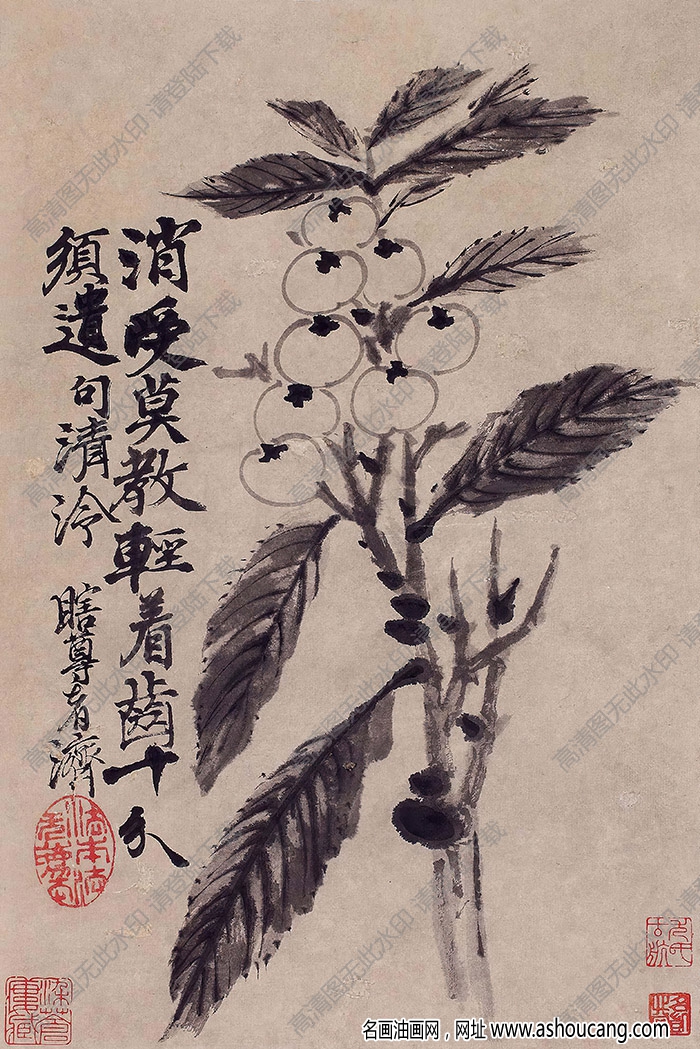 消受莫教輕着齒十分
須遺句清泠
瞎尊者濟
名画油画网，网址 www.ashoucang.com
高清图无此水印 请登陆下载